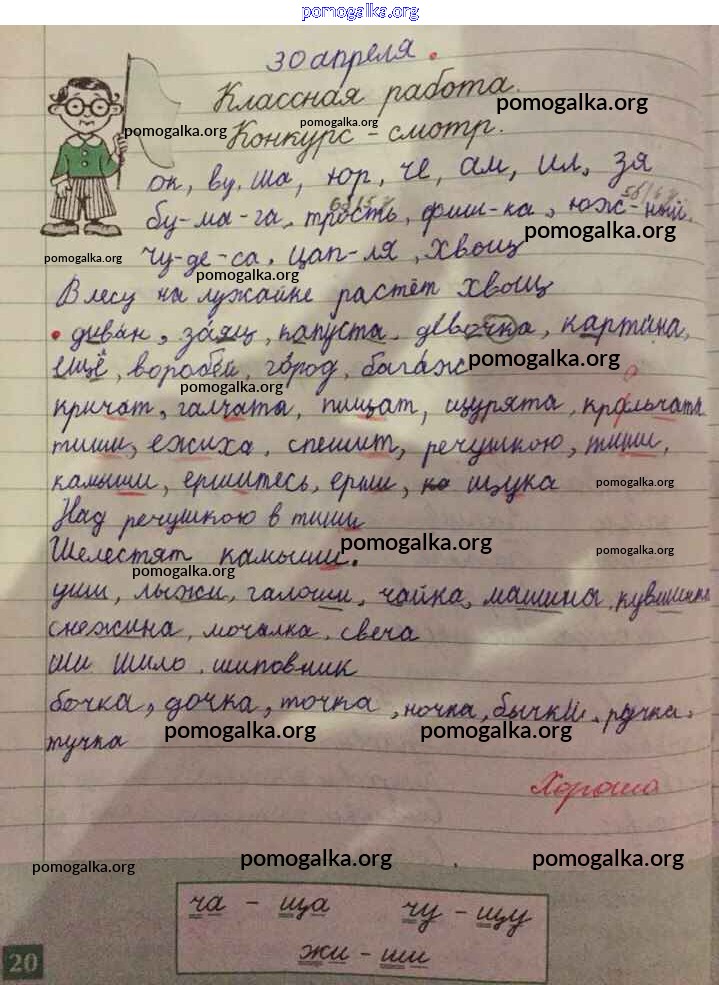 pomogalka.org
30 апреля.
Классная работа.
pomogalka.org
pomogalka.org
pomogalka.org
Конкурс - смотр.
ок, ву, ша, юр, че, ам, ил, зя
6з/5б
5б/4з
бу-ма-га, трость, фиш-ка, юж-ный.
pomogalka.org
чу-де-са, цап-ля, хвощ
pomogalka.org
pomogalka.org
В лесу на лужайке растёт хвощ
диван, заяц, капуста, девочка, картина,
pomogalka.org
ещё, воробей, город, багаж
pomogalka.org
кричат, галчата, пищат, щурята, крольчата
тиши, ежиха, спешит, речушкою, тиши,
камыши, ершитесь, ерши, щука
pomogalka.org
Над речушкою в тиши
Шелестят камыши.
pomogalka.org
pomogalka.org
pomogalka.org
уши, лыжи, галоши, чайка, машина, кувшинка
снежина, мочалка, свеча
ши шило, шиповник
бочка, дочка, точка, ночка, бычки, ручка,
тучка
pomogalka.org
pomogalka.org
Хорошо
pomogalka.org
pomogalka.org
pomogalka.org
ча - ща чу - щу
жи - ши
20